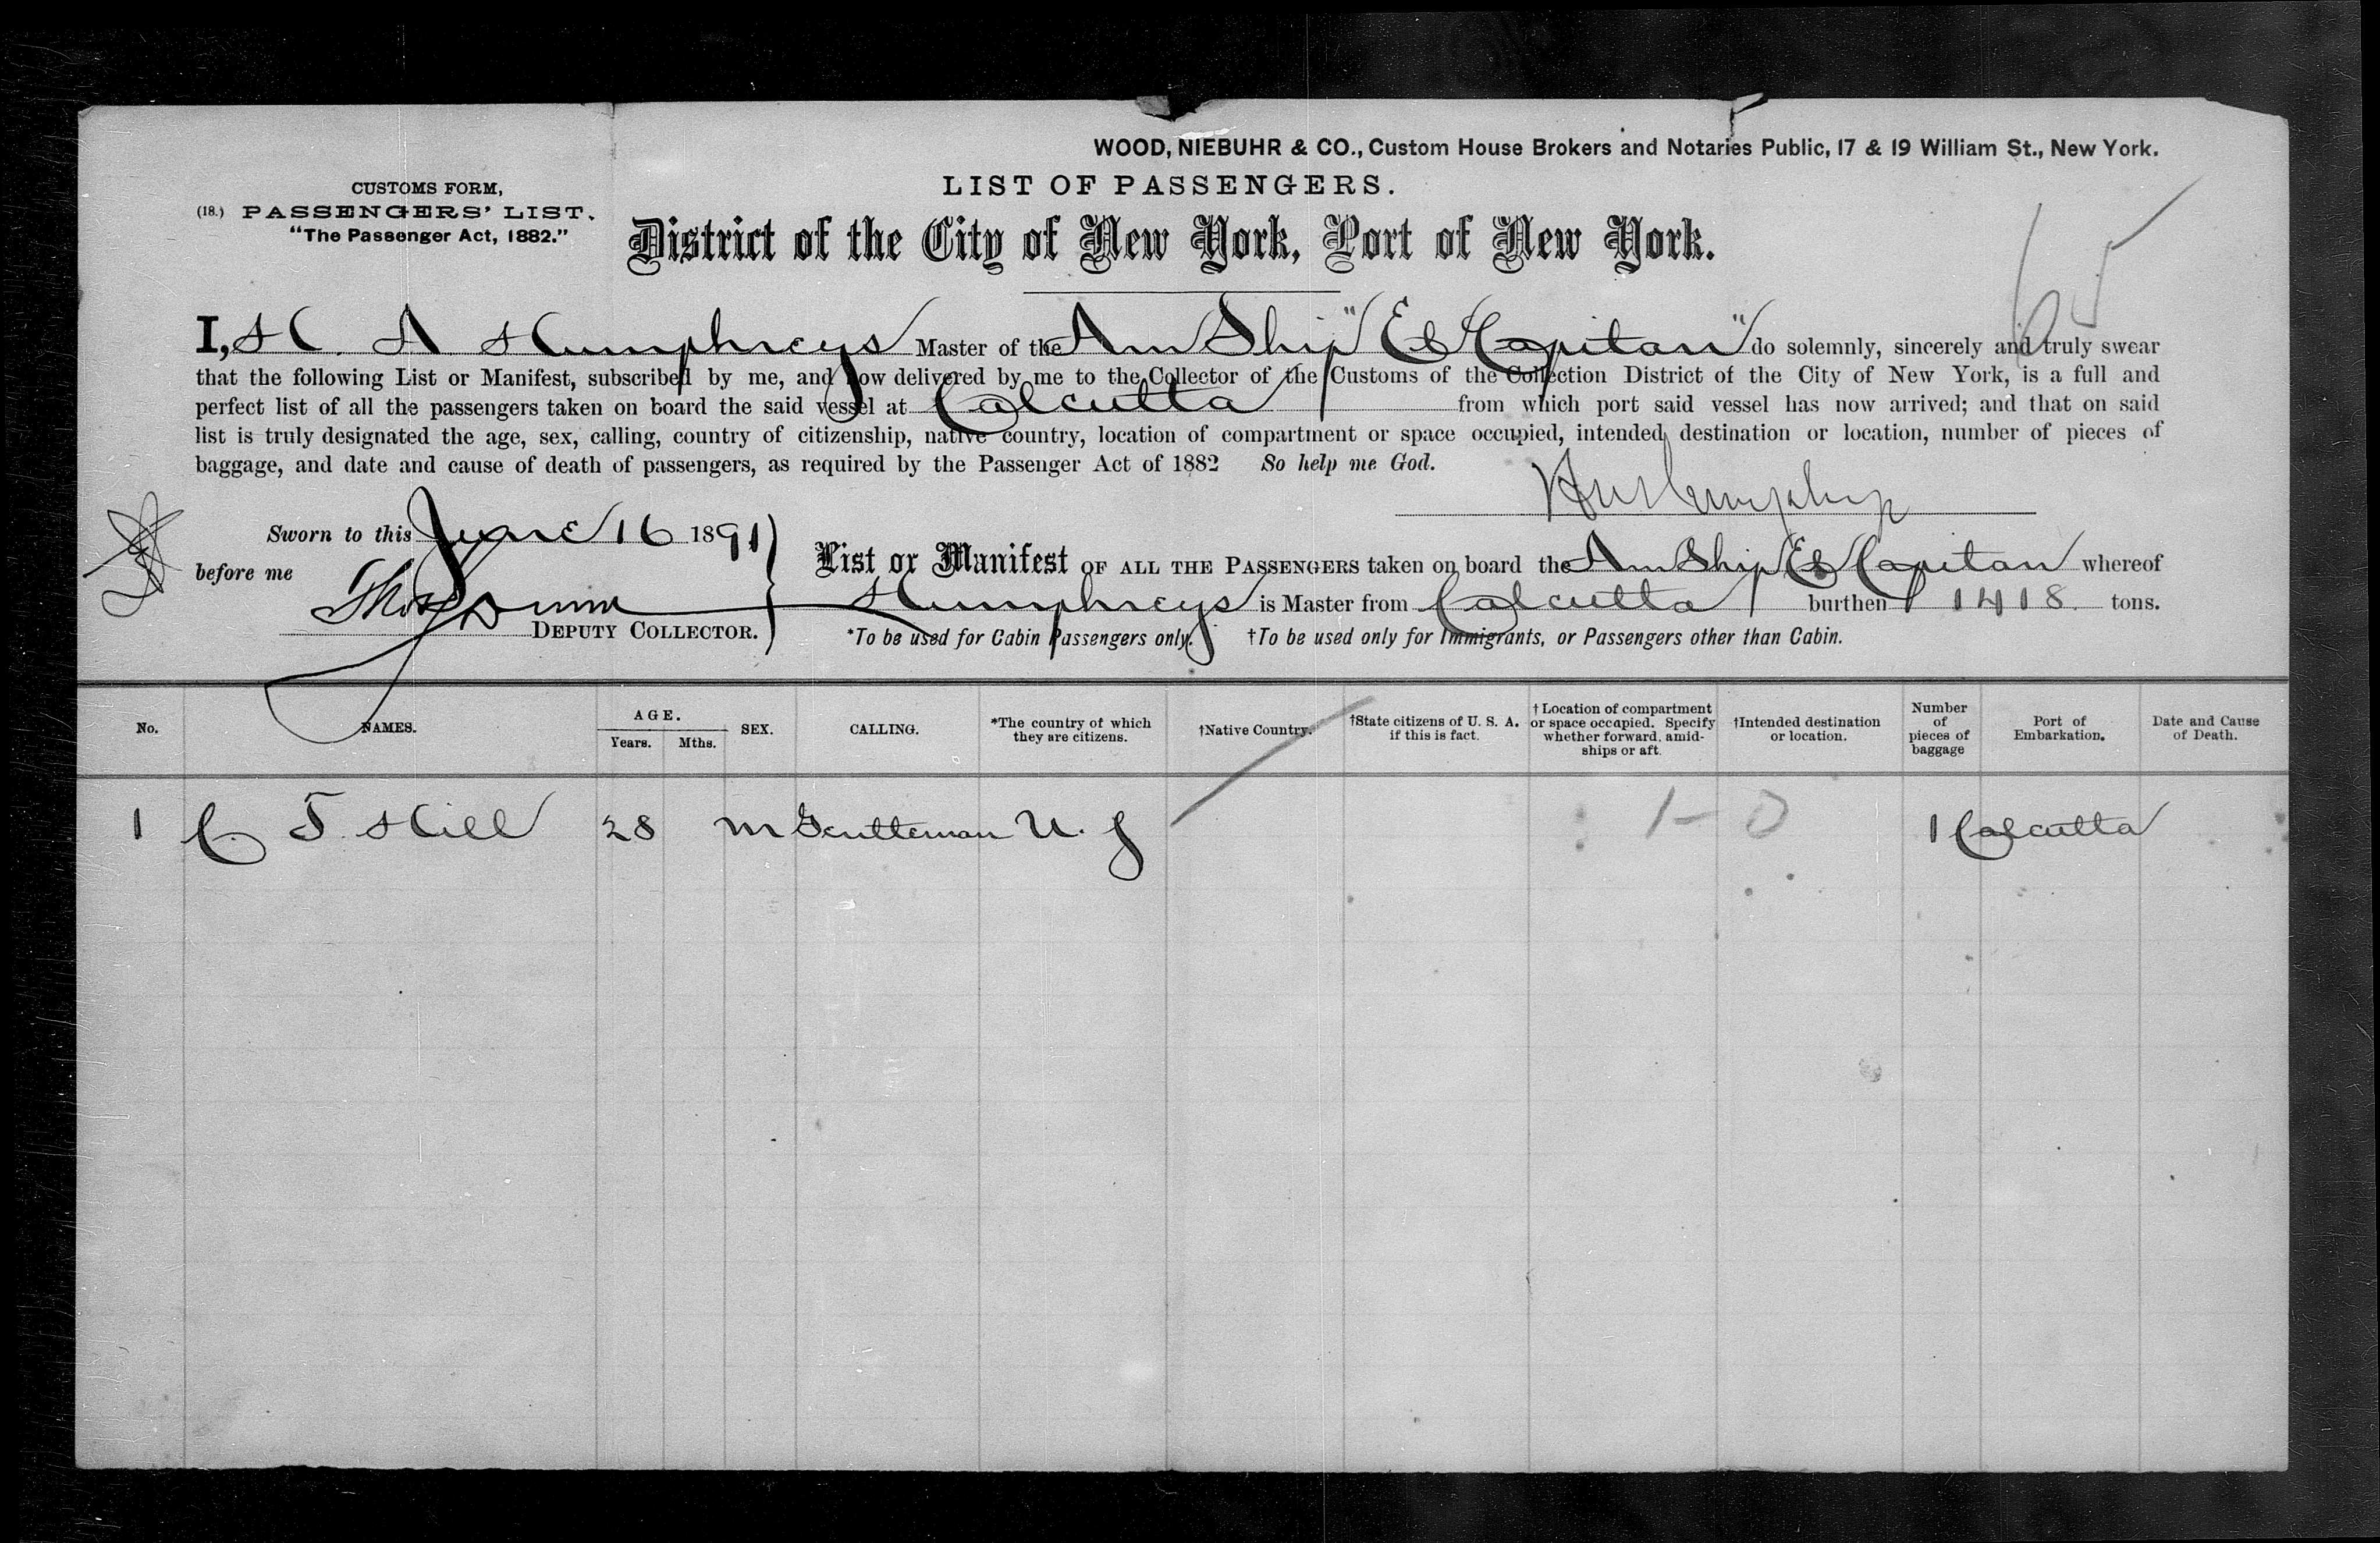 WOOD, NIEBUHR & CO., Custom House Brokers and Notaries Public, 17 & 19 William St., New York.
CUSTOMS FORM,
(18.) PASSENGERS' LIST.
"The Passenger Act, 1882."
LIST OF PASSENGERS.
District of the City of New York, Port of New York.
65
I, H. A Humphreys Master of the Am Ship "El Capitan" do solemnly, sincerely and truly swear
that the following List or Manifest, subscribed by me, and now delivered by me to the Collector of the Customs of the Collection District of the City of New York, is a full and
perfect list of all the passengers taken on board the said vessel at Calcutta from which port said vessel has now arrived; and that on said
list is truly designated the age, sex, calling, country of citizenship, native country, location of compartment or space occupied, intended destination or location, number of pieces of
baggage, and date and cause of death of passengers, as required by the Passenger Act of 1882 So help me God.
Sworn to this June 16 1891
before me
Thos Dunn
DEPUTY COLLECTOR.
List or Manifest OF ALL THE PASSENGERS taken on board the Am Ship El Capitan whereof
Humphreys is Master from Calcutta burthen 1418 tons.
*To be used for Cabin Passengers only. †To be used only for Immigrants, or Passengers other than Cabin.
No. NAMES. AGE. Years. Mths. SEX. CALLING. *The country of which they are citizens. †Native Country. †State citizens of U. S. A. if this is fact. †Location of compartment or space occapied. Specify whether forward, amid-ships or aft. †Intended destination or location. Number of pieces of baggage Port of Embarkation. Date and Cause of Death.
1 C. T. Hill 28 m Gentleman U. S 1 - 0 1 Calcutta